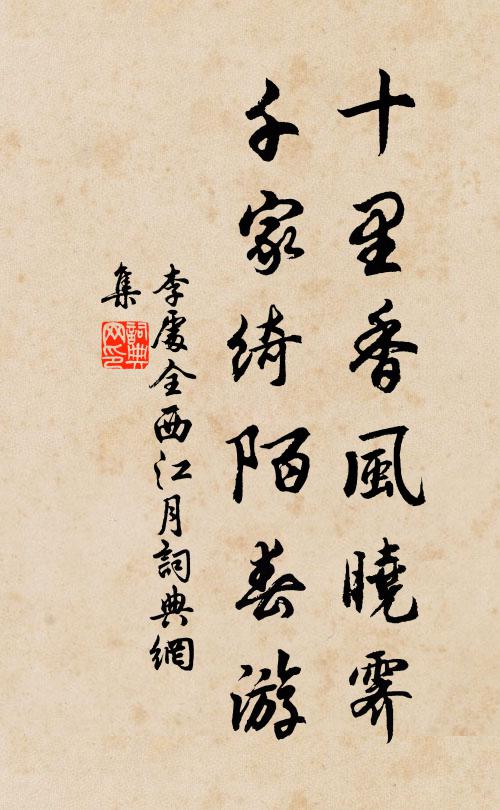 十里香風曉霽
千家綺陌春游
李處全西江月詞典網
集
詞典網印